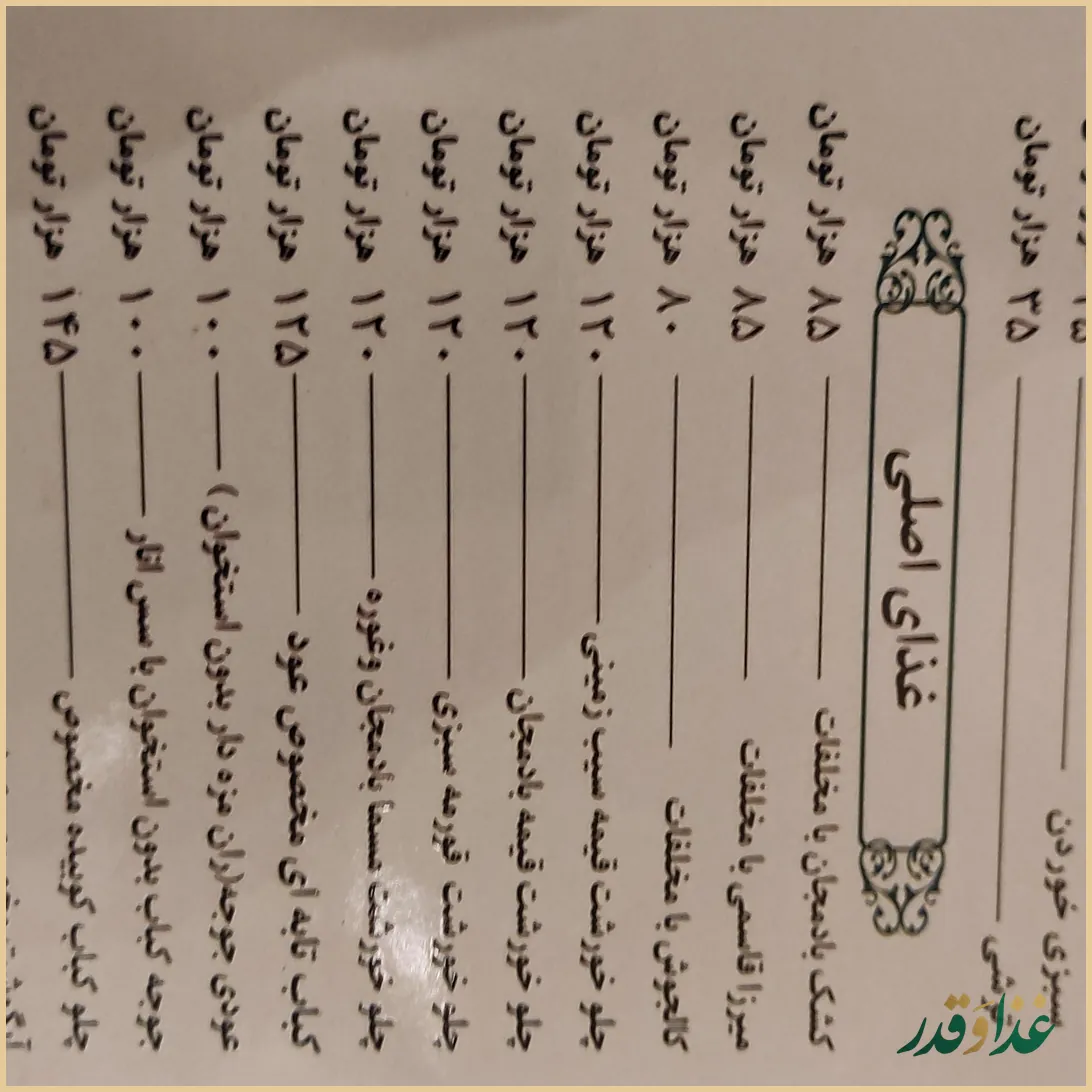 سبزی خوردن
ترشی ۳۵ هزار تومان
غذای اصلی
کشک بادمجان با مخلفات ۸۵ هزار تومان
میرزا قاسمی با مخلفات ۸۵ هزار تومان
کالجوش با مخلفات ۸۰ هزار تومان
چلو خورشت قیمه سیب زمینی ۱۲۰ هزار تومان
چلو خورشت قیمه بادمجان ۱۲۰ هزار تومان
چلو خورشت قورمه سبزی ۱۲۰ هزار تومان
چلو خورشت مسما بادمجان وغوره ۱۲۰ هزار تومان
کباب تابه ای مخصوص عود ۱۲۵ هزار تومان
عودی جوجه(ران مزه دار بدون استخوان) ۱۰۰ هزار تومان
جوجه کباب بدون استخوان با سس انار ۱۰۰ هزار تومان
چلو کباب کوبیده مخصوص ۱۴۵ هزار تومان
غذا و قدر